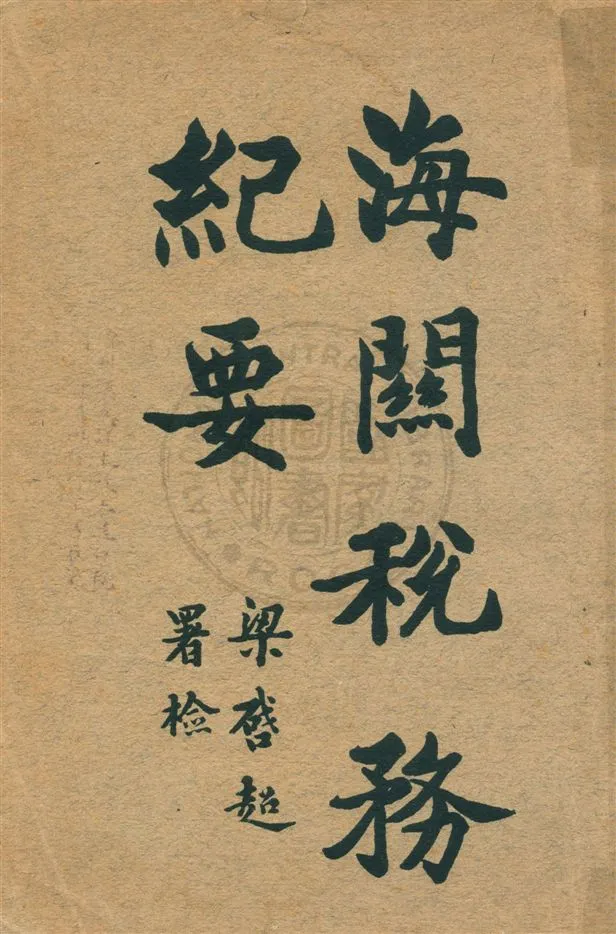 海關稅務
紀要
梁啓超
署檢